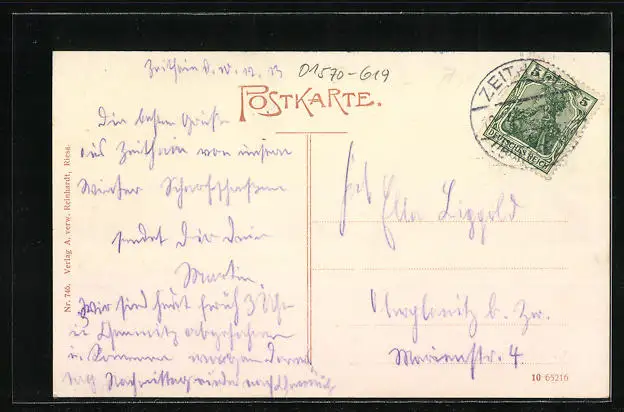 Zeithain d. 10.12.13
01570-619
POSTKARTE.
Die besten Grüße
aus Zeithain von unserem
Winter Scharfschießen
sendet Dir Dein
Martin.
Wir sind heut früh 3 Uhr
in Chemnitz abgefahren
u. kommen
tag Nachmittag wieder nach Chemnitz
Frl. Ella Lippold
Oberplanitz b. Zw.
Marienstr. 4
ZEIT
5 5
DEUTSCHES REICH
Nr. 746. Verlag A. verw. Reinhardt, Riesa.
10 65216